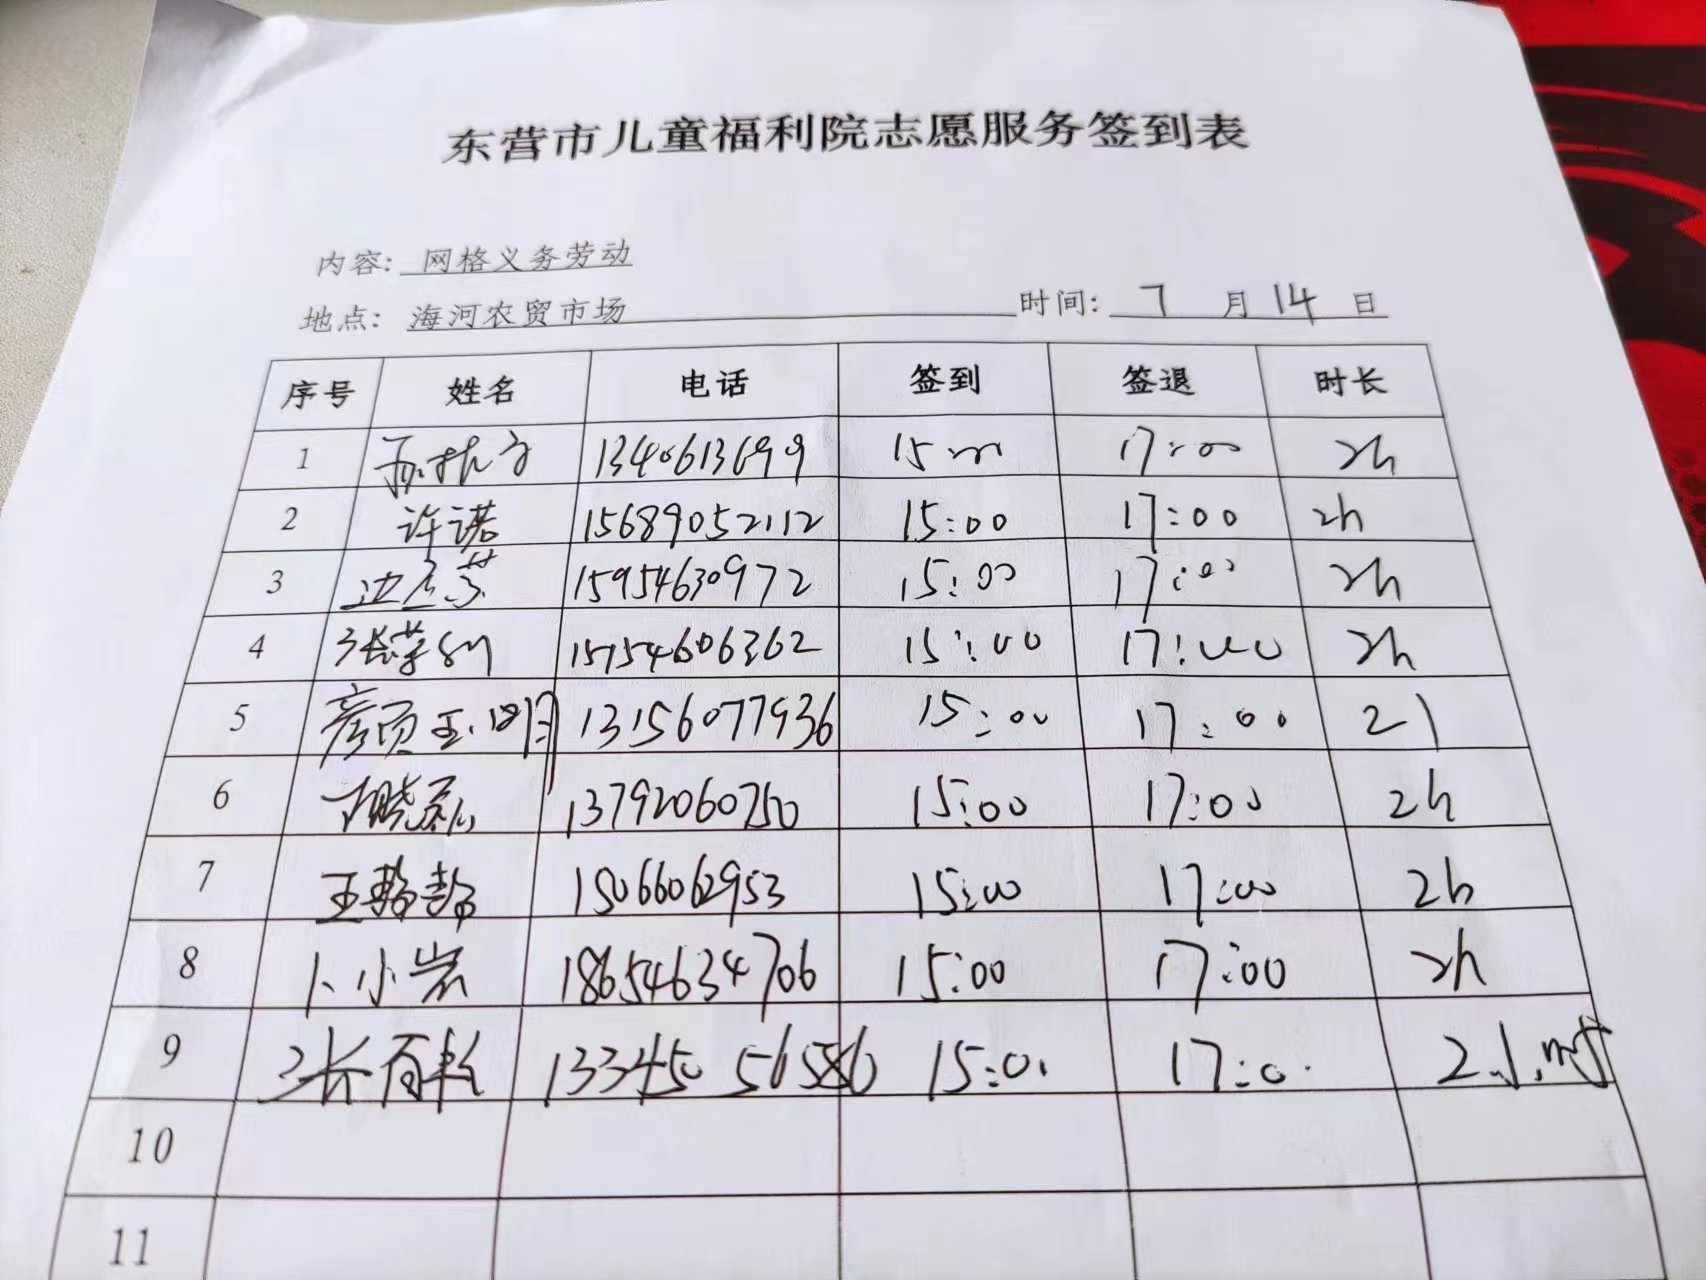 东营市儿童福利院志愿服务签到表
内容: 网格义务劳动
地点: 海河农贸市场 时间: 7 月 14 日
序号 姓名 电话 签到 签退 时长
1 15:00 17:00 2h
2 许诺 15689052112 15:00 17:00 2h
3 15954630972 15:00 17:00 2h
4 15154606362 15:00 17:00 2h
5 13156077936 15:00 17:00
6 13792060750 15:00 17:00 2h
7 15066062953 15:00 17:00 2h
8 卜小岩 18654634706 15:00 17:00 2h
9
10
11